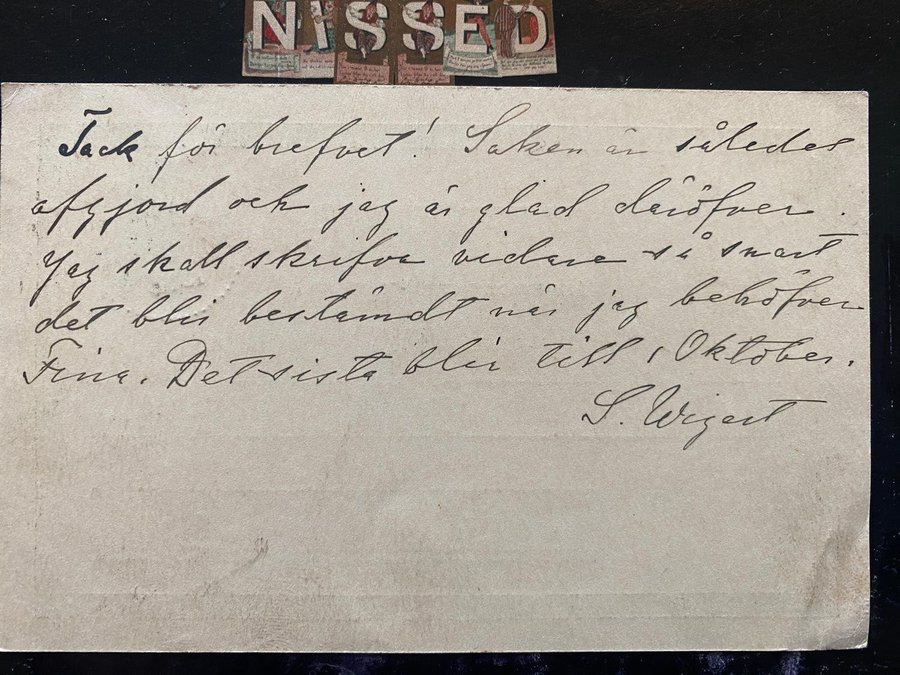 NISSED
Tack för brefvet! Saken är således
afgjord och jag är glad däröfver.
Jag skall skrifva vidare så snart
det blir bestämdt när jag behöfver
Fina. Det sista blir till 1 Oktober.
S. Wigert